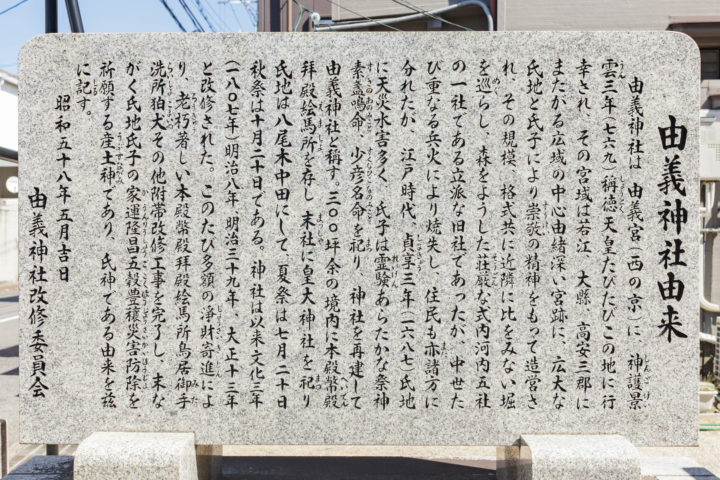 由義神社由来
由義神社は　由義宮（西の京）に　神護景
雲三年（七六九）称徳天皇たびたびこの地に行
幸され、その宮域は若江、大縣、高安三郡に
またがる広域の中心由緒深い宮跡に、広大な
氏地と氏子により崇敬の精神をもって造営さ
れ、その規模、格式共に近隣に比をみない堀
を巡らし、森をようした荘厳な式内河内五社
の一社である立派な旧社であったが、中世た
び重なる兵火により焼失し、住民も亦諸方に
分れたが、江戸時代、貞享三年（一六八七）氏地
に天災水害多く、氏子は霊験あらたかな祭神
素盞鳴命、少彦名命を祀り、神社を再建して
由義神社と称す。三〇〇坪余の境内に本殿幣殿
拝殿絵馬所を存し末社に皇大神社を祀り
氏地は八尾木中田にして、夏祭は七月二十日
秋祭は十月二十日である。神社は以来文化三年
（一八〇七年）明治八年、明治三十九年、大正十三年
と改修された。このたび多額の浄財寄進によ
り、老朽著しい本殿幣殿拝殿絵馬所鳥居御手
洗所狛犬その他附帯改修工事を完了し、末な
がく氏地氏子の家運隆昌五穀豊穣災害防除を
祈願する産土神であり、氏神である由来を茲
に記す。
昭和五十八年五月吉日
由義神社改修委員会